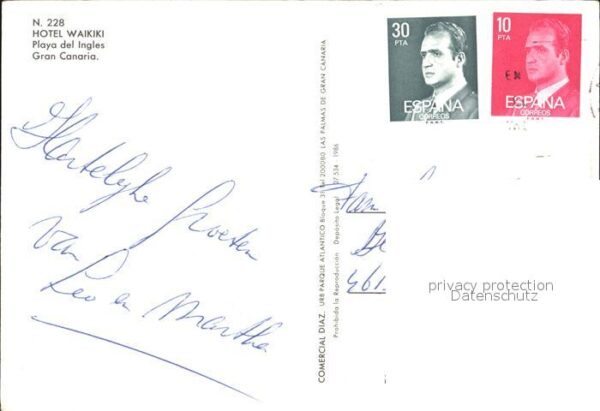 N. 228
HOTEL WAIKIKI
Playa del Ingles
Gran Canaria.
30
PTA
ESPAÑA
CORREOS
F.N.M.T.
10
PTA
ESPAÑA
CORREOS
F.N.M.T.
Hartelijke Groeten
van
Leo en Martha
COMERCIAL DIAZ. URB PARQUE ATLANTICO Bloque LAS PALMAS DE GRAN CANARIA
Prohibida la Reproducción Depósito Legal 1986
Fam
461
privacy protection
Datenschutz